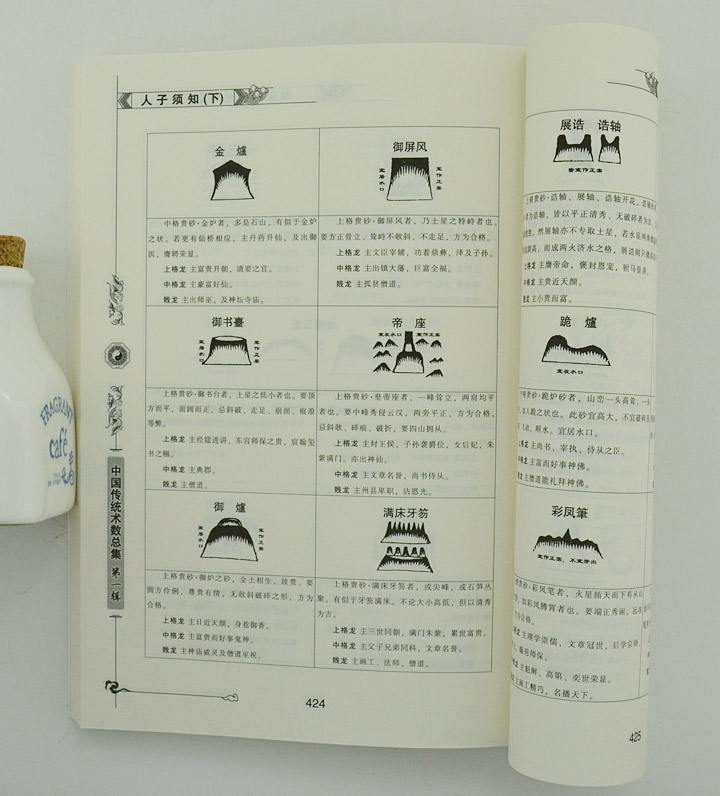 人子须知(下)
金爐
宜居水口
中格贵砂·金炉者，多是石山，有似于金炉
之状。若更有仙桥相应，主丹药升仙，及出御
医，膺聘荣显。
上格龙 主富贵升朝，清要之官。
中格龙 主豪富好仙。
贱龙 主出师巫，及神坛寺庙。
御屏风
宜作正案
上格贵砂·御屏风者，乃土星之特峙者也。
要方正骨立，耸峙不欹斜，不走足，方为合格。
上格龙 主文臣宰辅，功着鼎彝，泽及子孙。
中格龙 主出镇大藩，巨富全福。
贱龙 主孤贫僧道。
御书臺
宜居水口
宜作正案
上格贵砂·御书台者，土星之低小者也。要顶
方而平，面圆而正，忌斜破、走足、崩面、痕浪
等弊。
上格龙 主经筵进讲，东宫师保之贵，宸翰玺
书之赐。
中格龙 主典郡。
贱龙 主僧道。
帝座
宜收水口
宜作正案
上格贵砂·皇帝座者，一峰耸立，两肩均平
者也。要中峰秀侵云汉，两旁平正，方为合格。
忌斜欹、碎痕、破折，要四山拥从。
上格龙 主封王侯、子孙袭爵位，女后妃，朱
紫满门。亦出神仙。
中格龙 主文章名誉，尚书侍从。
贱龙 主州县卑职，沾恩光。
御爐
宜居水口
宜作正案
上格贵砂·御炉之砂，金土相生，故贵。要
面方伶俐，尊贵有情，无欹斜破碎之形，方为
合格。
上格龙 主日近天颜，身惹御香。
中格龙 主富贵而好事鬼神。
贱龙 主神庙威灵及僧道巫祝。
满床牙笏
上格贵砂·满床牙笏者，或尖峰，或石笋丛
聚，有似于牙笏满床。不论大小高低，但以清秀
为吉。
上格龙 主三世同朝，满门朱紫，累世富贵。
中格龙 主父子兄弟同科，文章名誉。
贱龙 主画工、法师、僧道。
中国传统术数总集 第一辑
424
展诰 诰轴
皆宜作正案
上格贵砂·诰轴、展轴、诰轴开花，
者为诰轴，皆以平正清秀、无破碎者为
然展轴亦不专取土星，若水星两角
高，而成两火济水之格，展诰则
上格龙 主膺帝命，褒封恩宠，驸马
中格龙 主贵近天颜。
贱龙 主小贵而富。
跪爐
宜收水口
中格贵砂·跪炉砂者，山峦一头高耸，一头
如人跪之状也。此砂宜高大，不宜破碎
飞走、顺水。宜居水口。
上格龙 主尚书、宰执、侍从之臣。
中格龙 主富而好事神佛。
贱龙 主僧道能礼拜神佛。
彩凤筆
宜作正案，不宜旁出
贵砂·彩凤笔者，火星插天而下有从山
如彩凤腾霄者也。要端正秀丽，
为合格。
龙 主理学崇儒，文章冠世，后学宗师，
翰苑师保。
龙 主魁解、高第、奕世荣显。
龙 主画工精巧，名播天下。
425
FRAGRANT
café